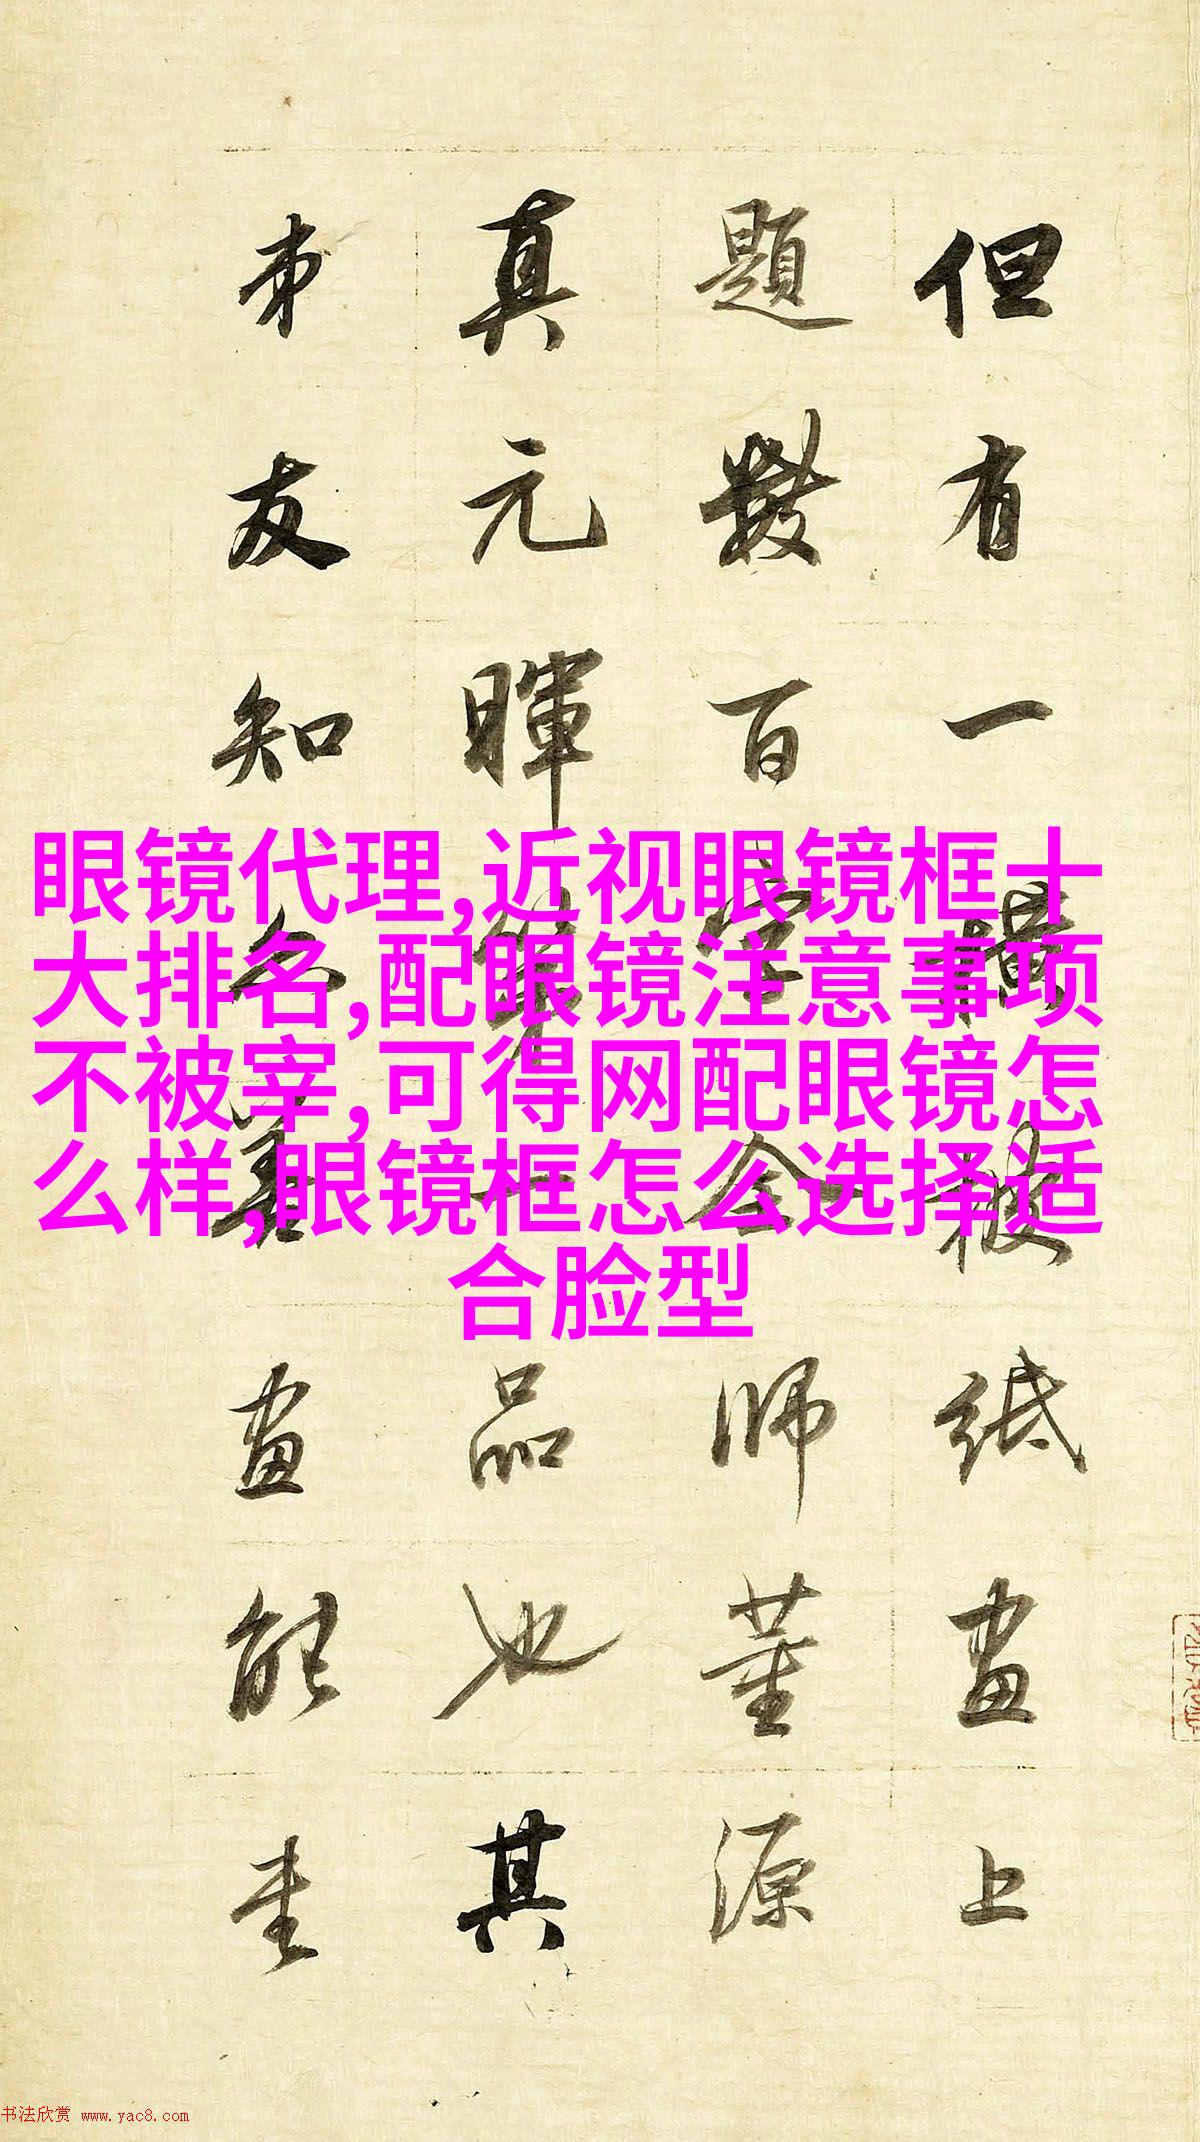 但有一橫被紙畫上
題數百空全師董源
真元暉一品也其
弟友知畫能
眼镜代理,近视眼镜框十
大排名,配眼镜注意事项
不被宰,可得网配眼镜怎
么样,眼镜框怎么选择适
合脸型
书法欣赏 www.yac8.com